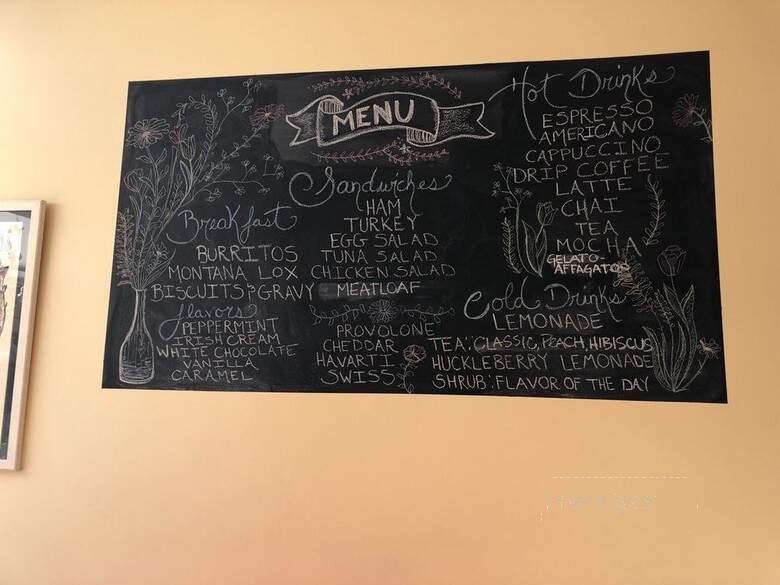 MENU
Breakfast
BURRITOS
MONTANA LOX
BISCUITS & GRAVY
flavors
PEPPERMINT
IRISH CREAM
WHITE CHOCOLATE
VANILLA
CARAMEL
Sandwiches
HAM
TURKEY
EGG SALAD
TUNA SALAD
CHICKEN SALAD
MEATLOAF
PROVOLONE
CHEDDAR
HAVARTI
SWISS
Hot Drinks
ESPRESSO
AMERICANO
CAPPUCCINO
DRIP COFFEE
LATTE
CHAI
TEA
MOCHA
GELATO-
AFFAGATO
Cold Drinks
LEMONADE
TEA: CLASSIC, PEACH, HIBISCUS
HUCKLEBERRY LEMONADE
SHRUB: FLAVOR OF THE DAY